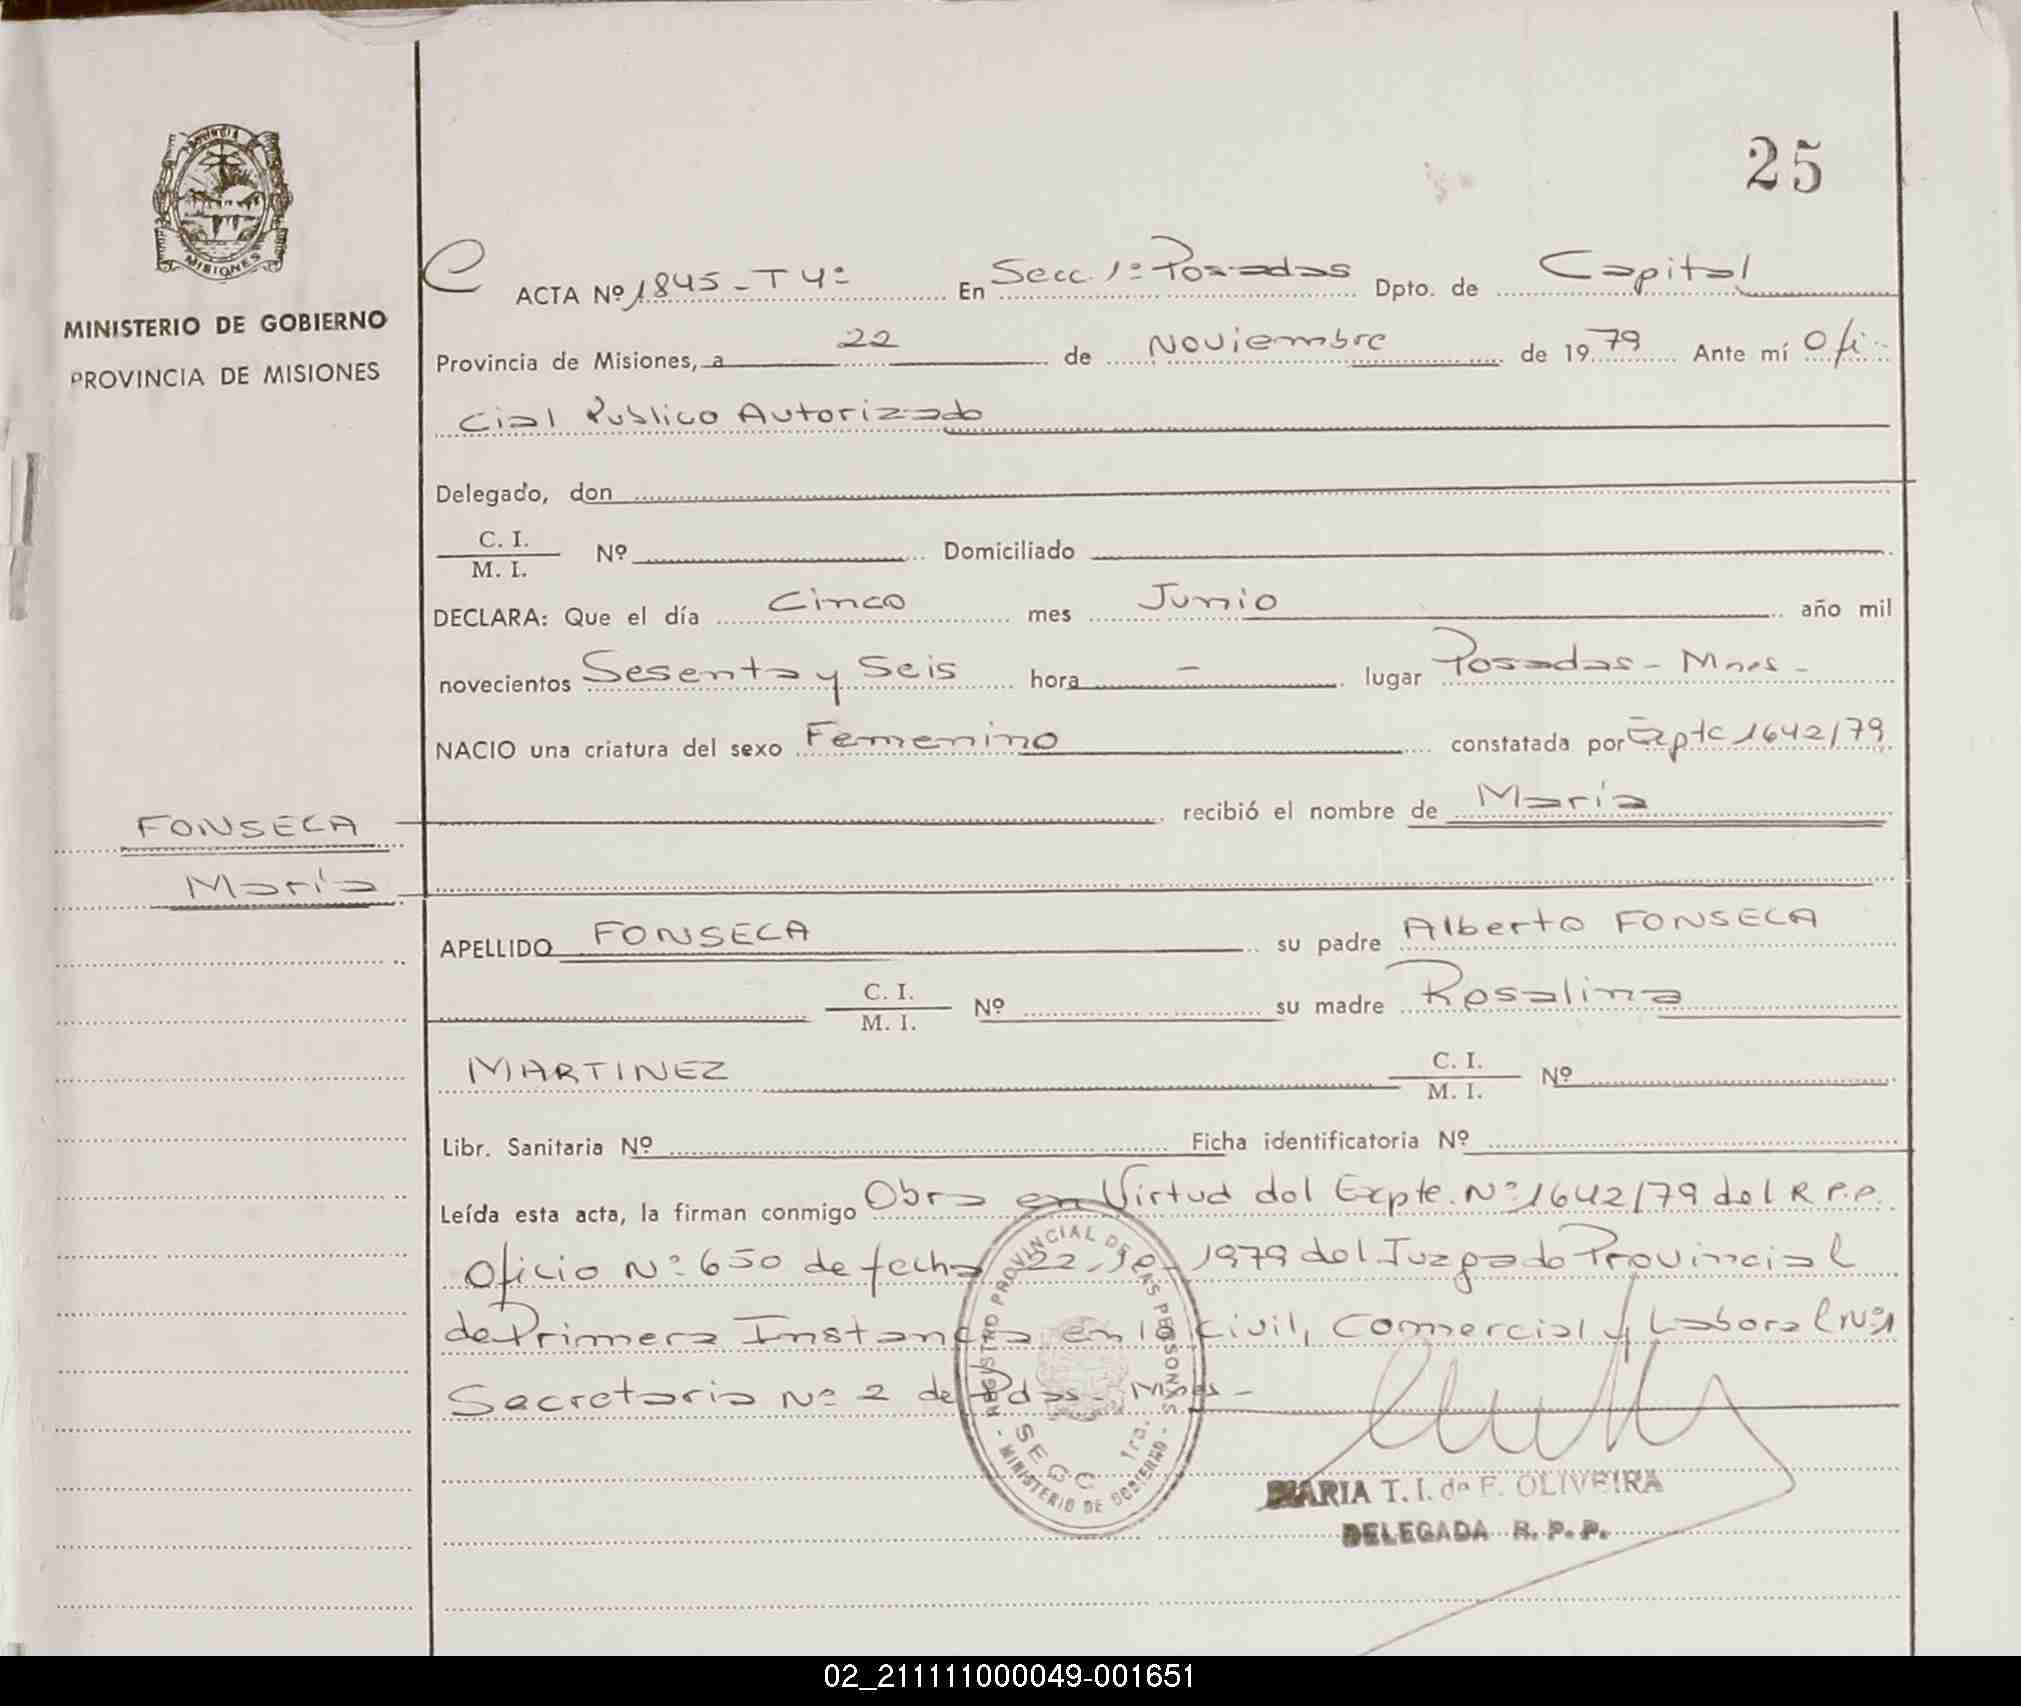 25
PROVINCIA
MISIONES
MINISTERIO DE GOBIERNO
PROVINCIA DE MISIONES
C ACTA Nº 1845 - T 4º En Secc. 1º Posadas Dpto. de Capital
Provincia de Misiones, a 22 de Noviembre de 1979 Ante mí Ofi-
cial Publico Autorizado
Delegado, don
C. I.
M. I. Nº Domiciliado
DECLARA: Que el día Cinco mes Junio año mil
novecientos Sesenta y Seis hora - lugar Posadas - Mnes -
NACIO una criatura del sexo Femenino constatada por Expte 1642/79
FONSECA recibió el nombre de María
María
APELLIDO FONSECA su padre Alberto FONSECA
C. I.
M. I. Nº su madre Rosalina
MARTINEZ C. I.
M. I. Nº
Libr. Sanitaria Nº Ficha identificatoria Nº
Leída esta acta, la firman conmigo Obra en Virtud del Expte. Nº 1642/79 del R P.P.
Oficio Nº 650 de fecha 22-10-1979 del Juzgado Provincial
de Primera Instancia en lo Civil, Comercial y Laboral Nº 1
Secretaria Nº 2 de Pdas - Mnes -
REGISTRO PROVINCIAL DE LAS PERSONAS
SECC 1ra.
- MINISTERIO DE GOBIERNO -
MARIA T. I. de F. OLIVEIRA
DELEGADA R. P. P.
02_211111000049-001651